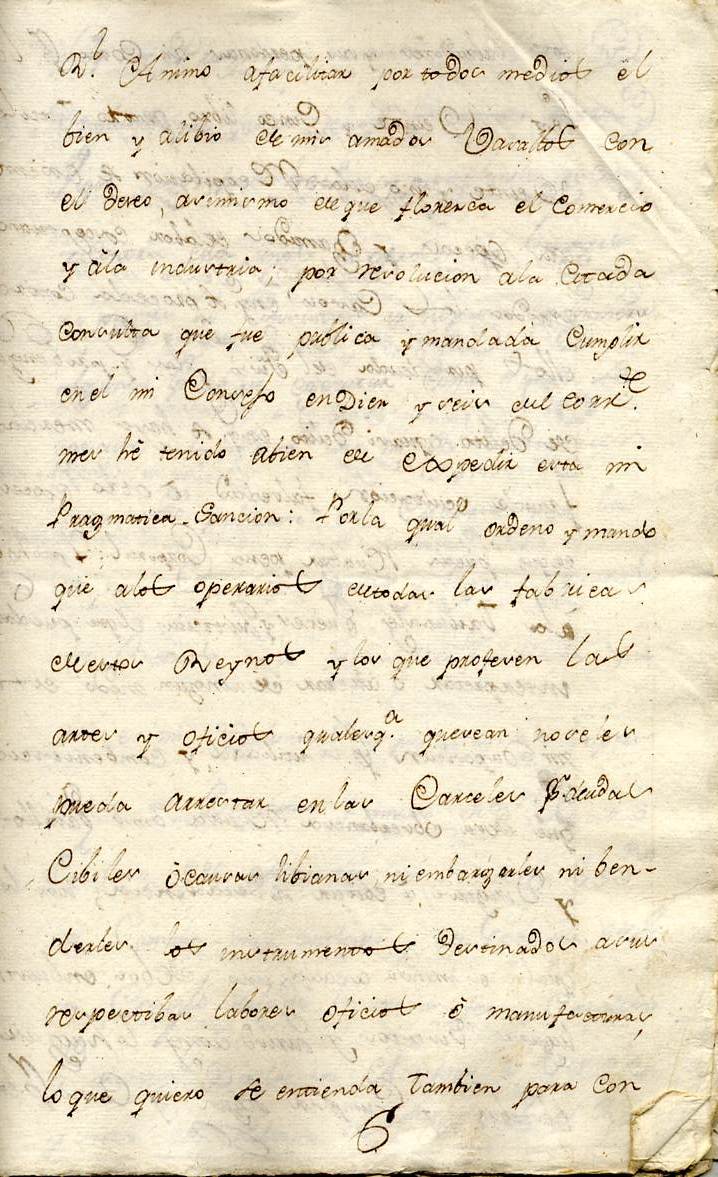 Rl. Animo afacilitar por todos medios el
bien y alibio de mis amados Vasallos con
el deseo, asimismo de que florezca el Comercio
y âla industria; por resolucion ala Citada
Consulta que fue publica y mandada Cumplir
en el mi Consejo en Diez y seis del corrte.
mes hê tenido abien de Expedir esta mi
Pragmatica-Sancion: Por la qual ordeno y mando
que alos operarios de todas las fabricas
de estos Reynos y los que profesen las
artes y oficios qualesqa. que sean no se les
pueda arrestar en las Carceles Pr. deudas
Cibiles ô causas libianas ni embargarles ni ben-
derles los instrumentos destinados a sus
respectibas labores oficios ô manufacturas,
lo que quiero se entienda tambien para con
6